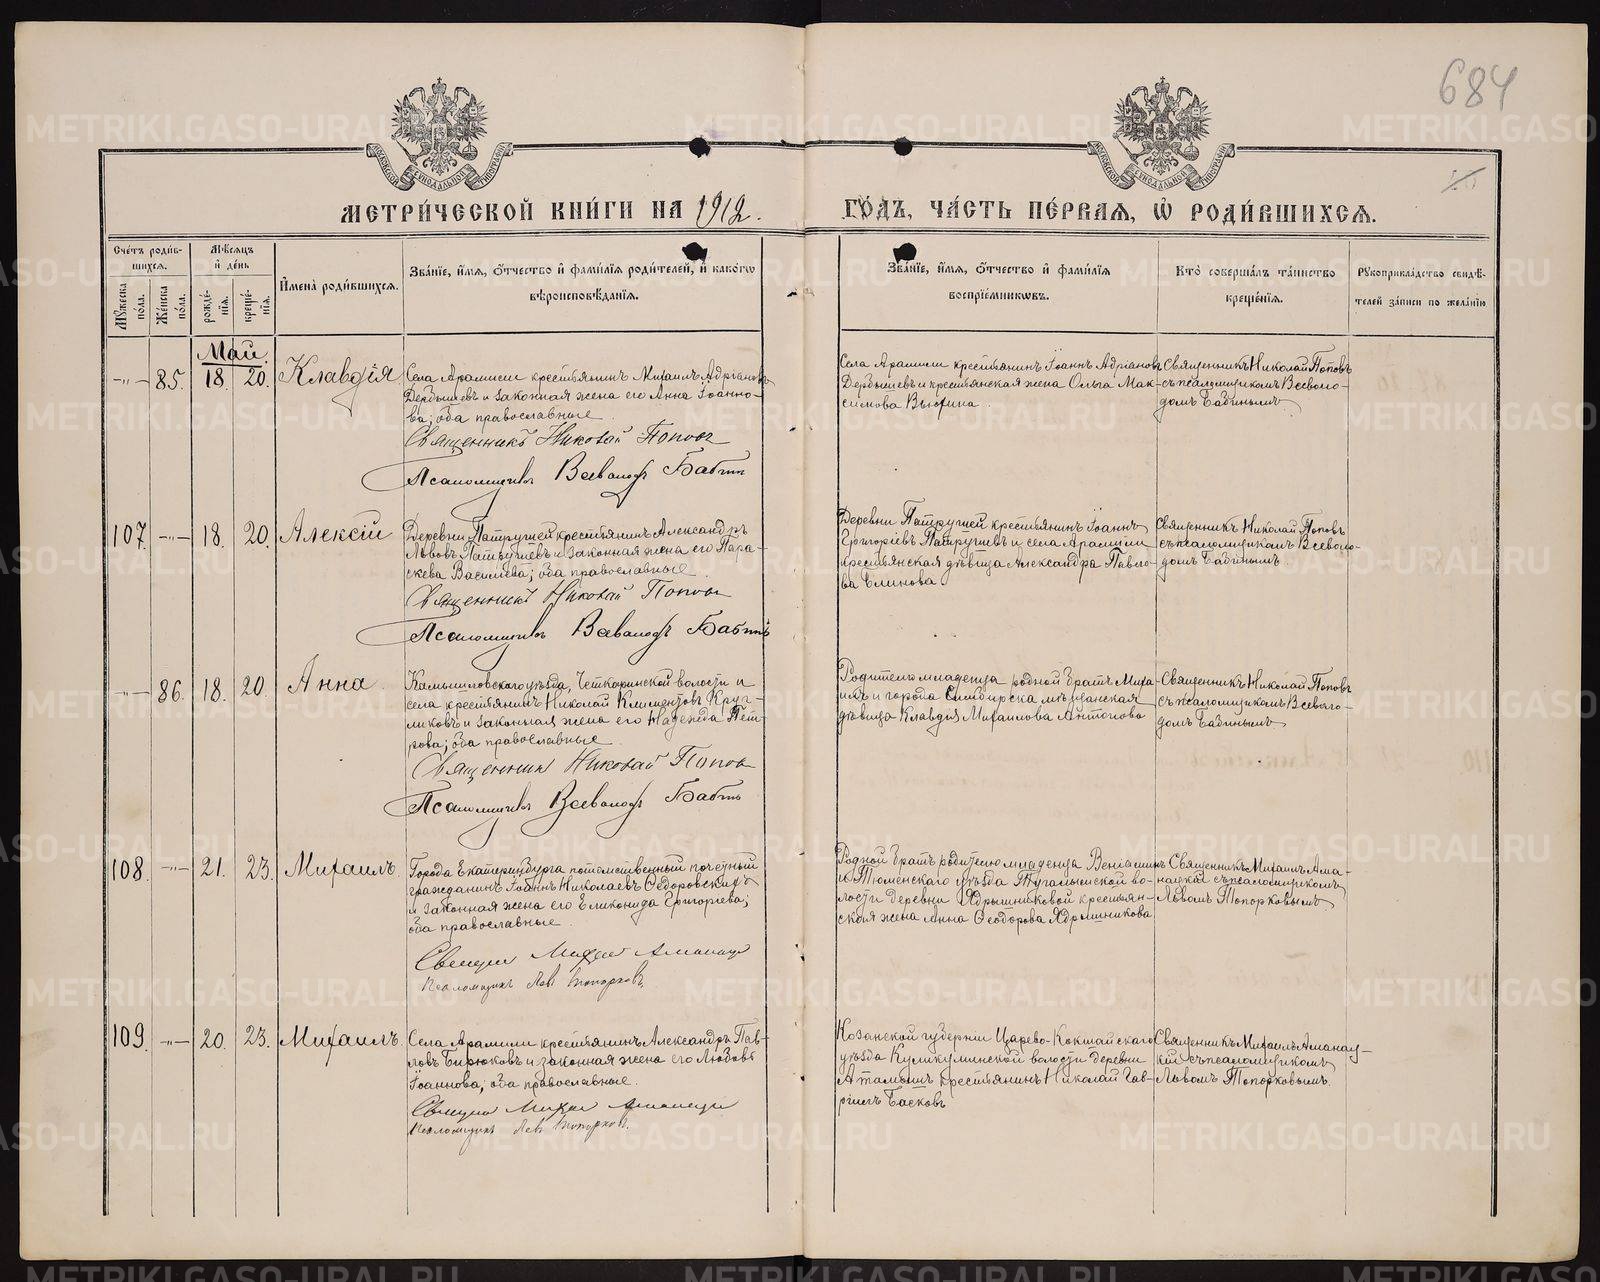 684
МЕТРИ́ЧЕСКОЙ КНИ́ГИ НА 1912.
ГО́ДЪ, ЧА́СТЬ ПЕ́РВАѦ, Ѡ҆ РОДИ́ВШИХСѦ.
Сче́тъ роди́в-
шихсѧ.
Мꙋ́жеска по́ла.
Же́нска по́ла.
Мѣ́сѧцъ и҆ де́нь
рожде́-
нїѧ.
креще́-
нїѧ.
И҆мена̀ роди́вшихсѧ.
Зва́нїе, и҆́мѧ, ѻ҆́тчество и҆ фами́лїѧ роди́телей, и҆ како́гѡ
вѣроисповѣ́данїѧ.
Зва́нїе, и҆́мѧ, ѻ҆́тчество и҆ фами́лїѧ
воспрїе́мникѡвъ.
Кто̀ соверша́лъ та́инство
креще́нїѧ.
Рꙋкоприкла́дство свидѣ́-
телей за́писи по жела́нїю
Май.
-"- 85. 18. 20. Клавдія
Села Арамили крестьянинъ Михаилъ Адріановъ
Дербышевъ и законная жена его Анна Іоанно-
ва; оба православные
Священникъ Николай Поповъ
Псаломщикъ Всеволодъ Бабинъ
Села Арамили крестьянинъ Іоаннъ Адріановъ
Дербышевъ и крестьянская жена Ольга Мак-
симова Вьюхина
Священникъ Николай Поповъ
съ псаломщикомъ Всеволо-
домъ Бабинымъ
107. -"- 18. 20. Алексій
Деревни Патрушей крестьянинъ Александръ
Львовъ Патрушевъ и законная жена его Пара-
скева Васильева; оба православные
Священникъ Николай Поповъ
Псаломщикъ Всеволодъ Бабинъ
Деревни Патрушей крестьянинъ Іоаннъ
Григорьевъ Патрушевъ и села Арамили
крестьянская дѣвица Александра Павло-
ва
Священникъ Николай Поповъ
съ псаломщикомъ Всеволо-
домъ Бабинымъ
-"- 86. 18. 20. Анна
Камышловскаго уѣзда, Четкаринской волости и
села крестьянинъ Николай Климентовъ Круг-
ликовъ и законная жена его Надежда Пет-
рова; оба православные
Священникъ Николай Поповъ
Псаломщикъ Всеволодъ Бабинъ
Родителя младенца родной братъ Миха-
илъ и города Симбирска мѣщанская
дѣвица Клавдія Михаилова Антопова
Священникъ Николай Поповъ
съ псаломщикомъ Всеволо-
домъ Бабинымъ
108. -"- 21. 23. Михаилъ.
Города Екатеринбурга потомственный почетный
гражданинъ Іоаннъ Николаевъ Ѳедоровскихъ
и законная жена его Еликонида Григорьева;
оба православные
Священникъ Михаилъ Аманацкій
Псаломщикъ Левъ Топорковъ.
Родной братъ родителю младенца Веніаминъ
и Тюменскаго уѣзда Тугалымской во-
лости деревни Ядрышниковой крестьян-
ская жена Анна Ѳеодорова Ядрышникова
Священникъ Михаилъ Ама-
нацкій съ псаломщикомъ
Львомъ Топорковымъ
109. -"- 20. 23. Михаилъ.
Села Арамили крестьянинъ Александръ Пав-
ловъ Бирюковъ и законная жена его Любовь
Іоаннова; оба православные.
Священникъ Михаилъ Аманацкій
Псаломщикъ Левъ Топорковъ.
Козанской губерніи Царево-Кокшайскаго
уѣзда волости деревни
крестьянинъ Николай Гав-
Басковъ
Священникъ Михаилъ Аманац-
кій съ псаломщикомъ
Львомъ Топорковымъ.